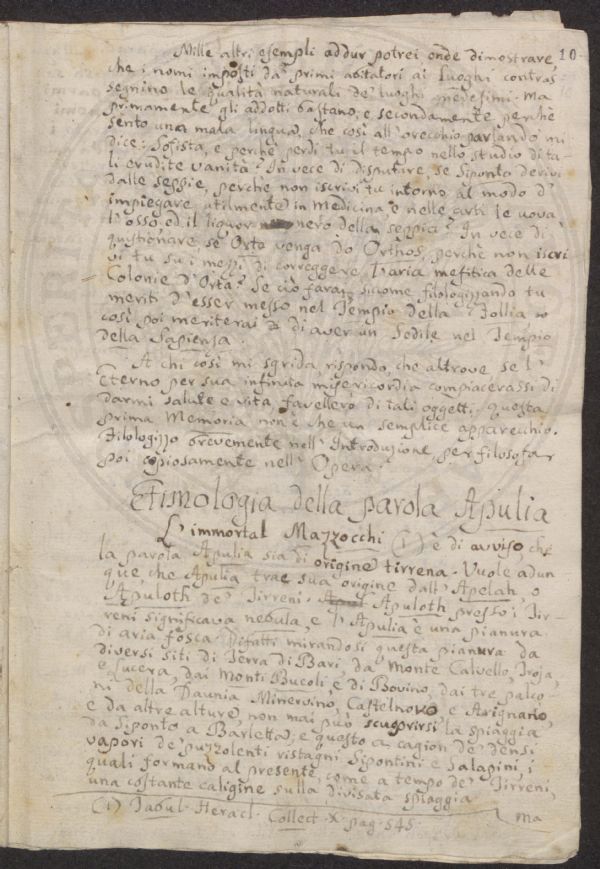 10
Mille altri esempli addur potrei onde dimostrare,
che i nomi imposti da' primi abitatori ai Luoghi contras
segnino le qualità naturali de' luoghi medesimi. Ma
primamente gli addotti bastano, e secondamente perchè
sento una mala lingua, che così all' orecchio parlando mi
dice: Sofista, e perchè perdi tu il tempo nello studio di ta-
li erudite vanità? In vece di disputare, se Siponto derivi
dalle Seppie, perchè non iscrivi tu intorno al modo d'
impiegare utilmente in Medicina, e nelle arti le uova
l'osso, ed il liquor nero della seppia? In vece di
quistionare se Orta venga da Orthos, perchè non iscri
vi tu su i mezzi di correggere l'aria mefitica delle
Colonie d'Orta? Se ciò farai, siccome filologizzando tu
meriti d'esser messo nel Tempio della Follia
così poi meriterai di aver un Sedile nel Tempio
della Sapienza.
A chi così mi sgrida, rispondo, che altrove se l'
Eterno per sua infinita misericordia compiacerassi di
darmi salute e vita favellerò di tali oggetti. Questa
prima Memoria non è che un semplice apparecchio.
Filologizzo brevemente nell' Introduzione, per filosofar
poi copiosamente nell' Opera.
Etimologia della parola Apulia
L' immortal Mazzocchi (1) è di avviso che
la parola Apulia sia di origine tirrena. Vuole adun
que che Apulia trae sua origine dall' Apelah, o
Apuloth de' Tirreni. Apuloth presso i Tir
reni significava nebula, e l'Apulia è una pianura
di aria fosca. Difatti mirandosi questa pianura da
diversi siti di Terra di Bari, da Monte Calvello, Troja,
e Lucera, dai Monti Bucoli e di Bovino, dai tre palco
ni della Daunia Minervino, Castelnovo e Arignano,
e da altre alture, non mai può scuoprirsi la spiaggia
da Siponto a Barletta; e questo a cagion de' densi
vapori de' puzzolenti ristagni Sipontini e Salapini, i
quali formano al presente, come a tempo de' Tirreni,
una costante caligine sulla divisata spiaggia
(1) Tabul. Heracl. Collect. X pag. 545.
Ma